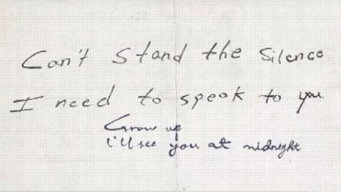 Can't stand the silence
I need to speak to you
Grow up
i'll see you at midnight